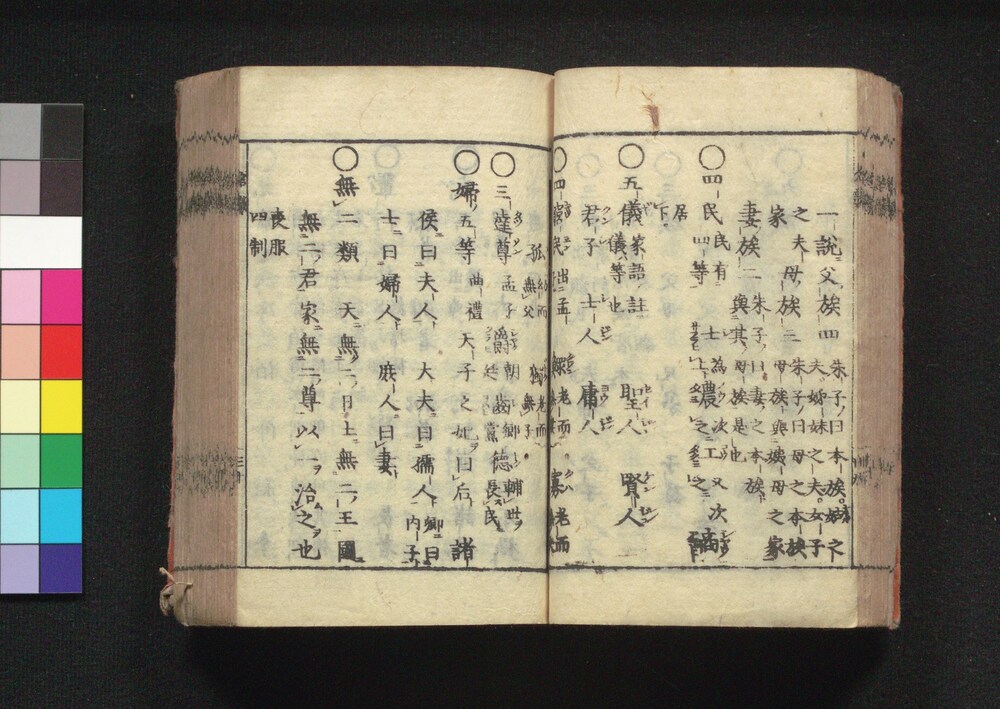 一説父族四 朱子ノ曰本族。姑之夫。姉妹之夫。女子
之夫母族三 朱子ノ曰母之本族 母族與姨母之家
家 妻族二 朱子ノ曰妻之本族 與其母族是也
○四民 民有四等 士 農 工 商
居下
○五儀 家語註 儀等也 聖人 賢人
君子 士人 庸人
○四窮民 出孟 鰥 老而無妻 寡 老而
孤 幼而無父 獨 老而無子
○三達尊 孟子 爵 朝廷 齒 郷黨 徳 輔世長民
○婦五等 曲禮 天子之妃曰后諸
侯曰夫人大夫曰孺人 卿曰内子
士曰婦人庶人曰妻
○無二類 天無二日土無二王國
無二君家無二尊以一治之也
喪服四制